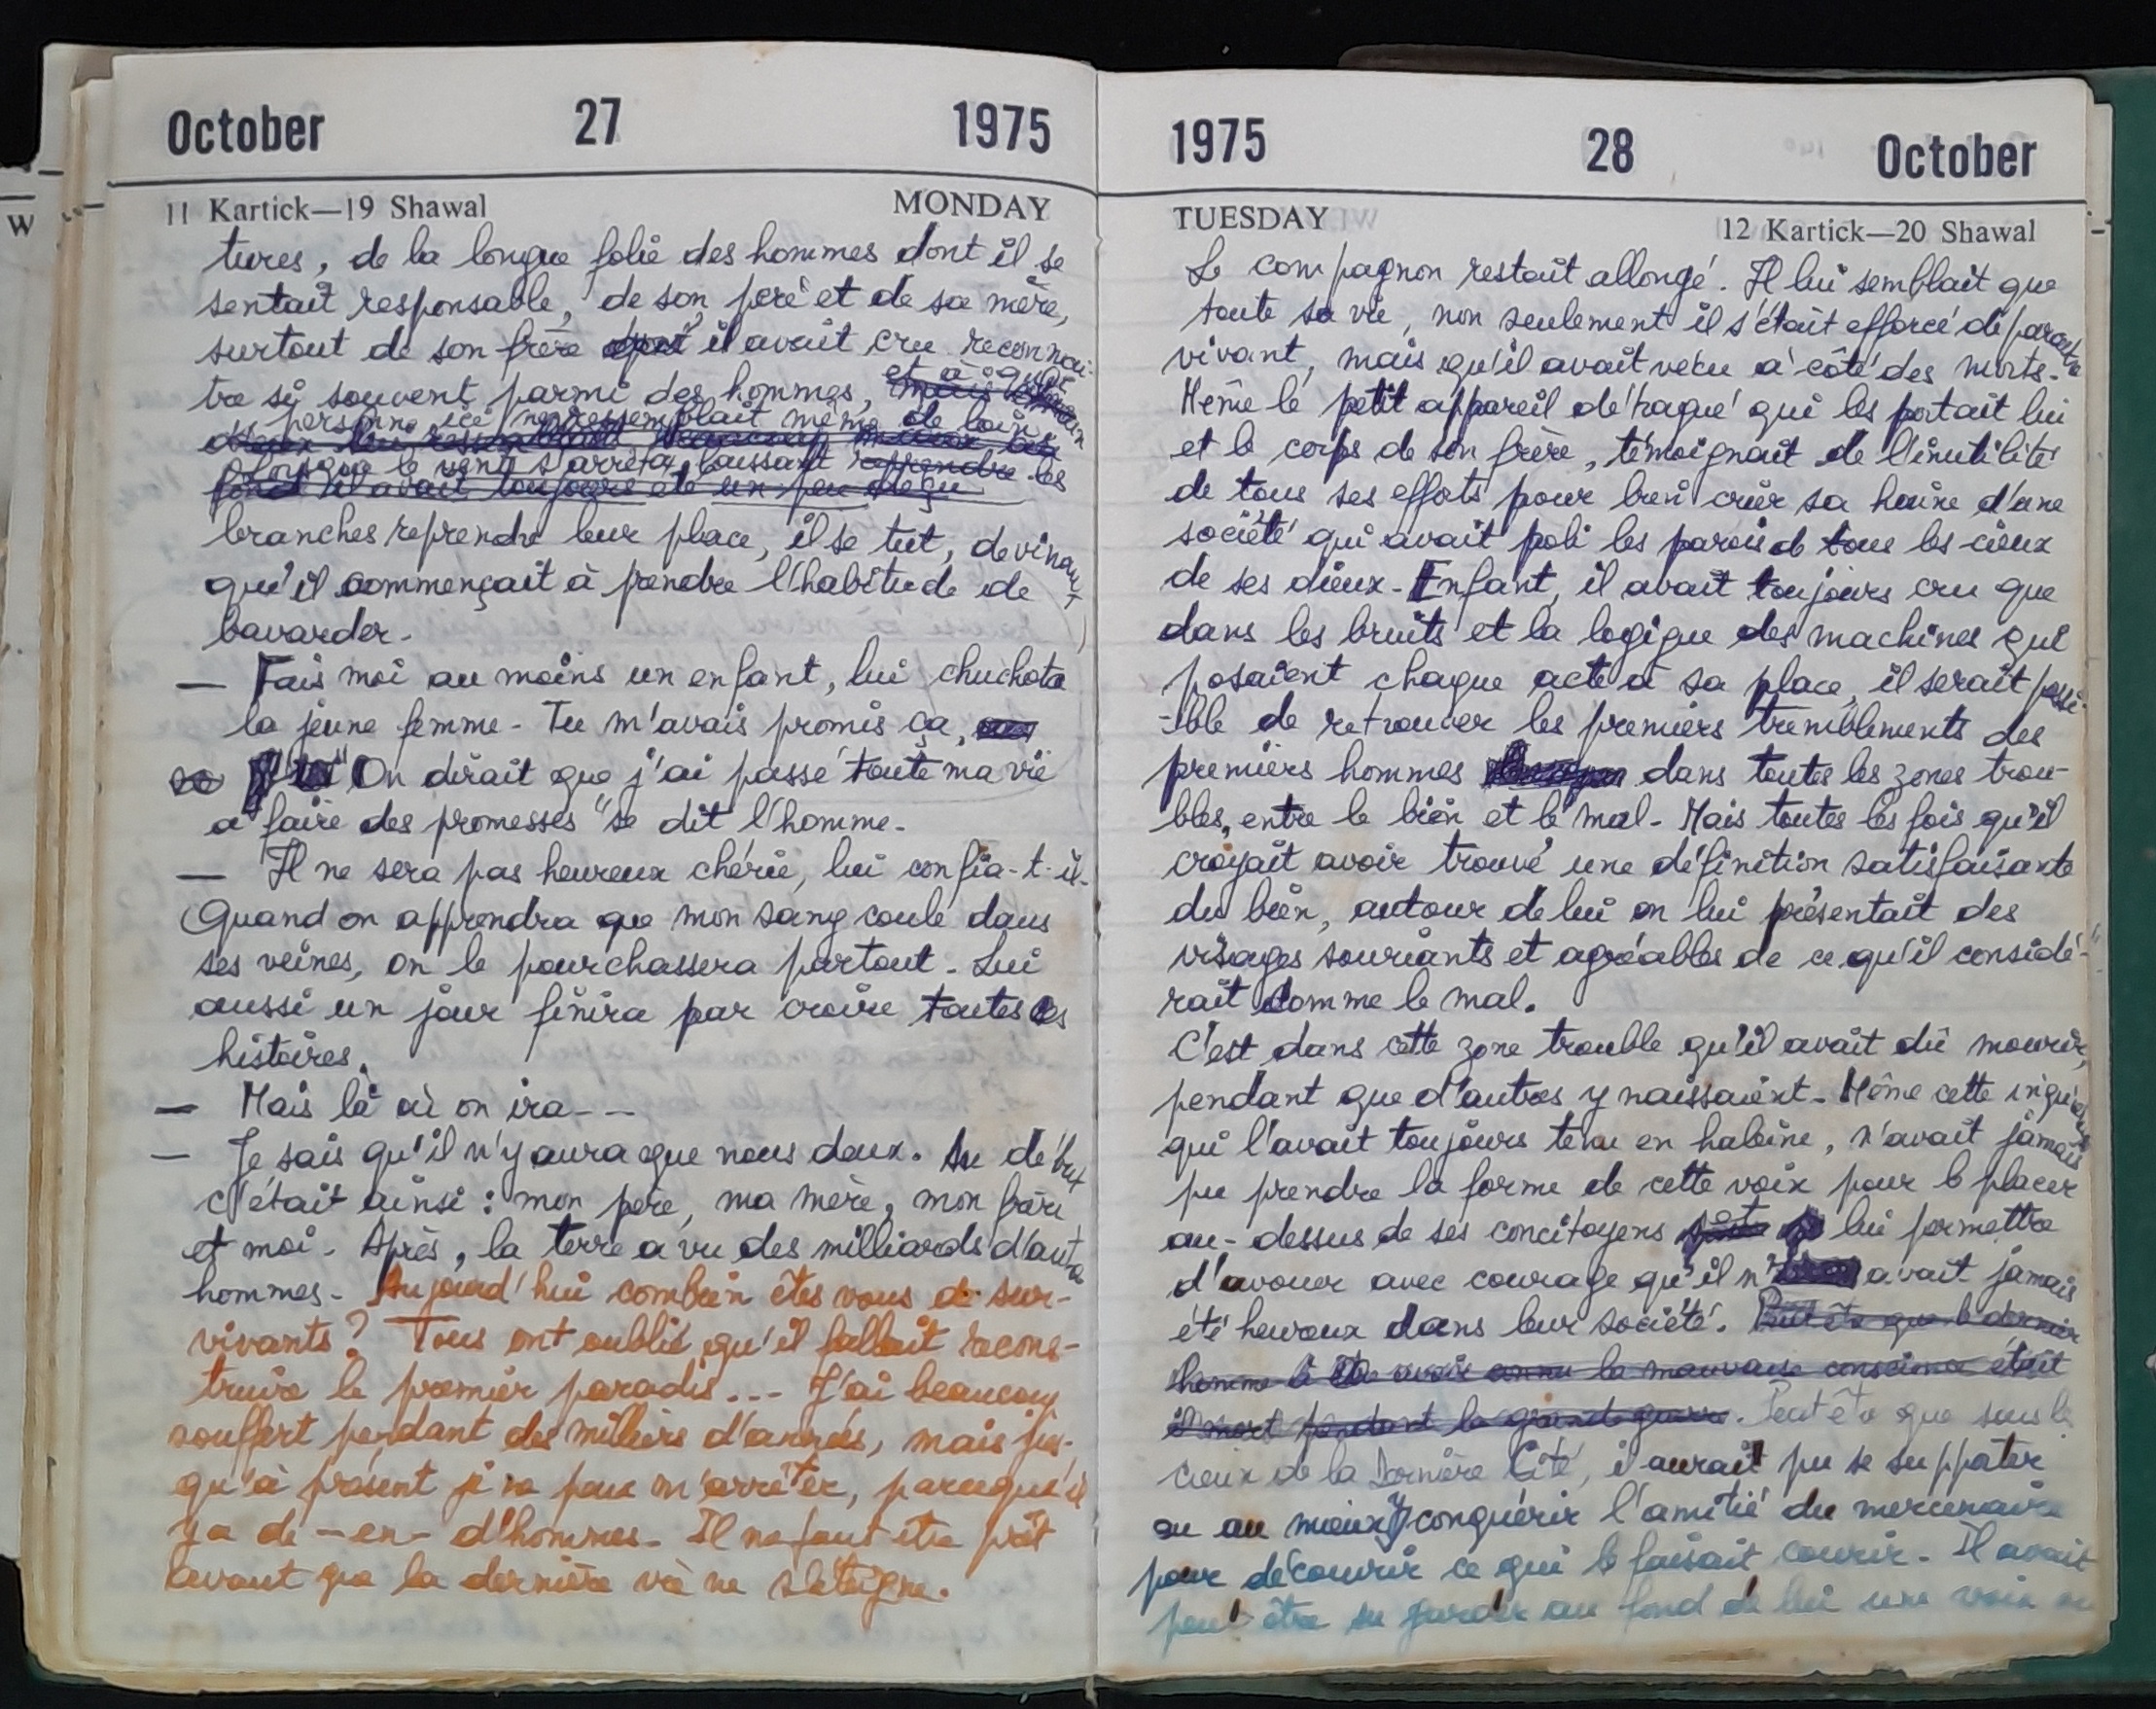 October 27 1975
11 Kartick—19 Shawal MONDAY
tures, de la longue folie des hommes dont il se
sentait responsable, de son père et de sa mère,
surtout de son frère qu'il avait cru reconnai-
tre si souvent parmi des hommes, et à qui
personne ici ne ressemblait même de loin.
Lorsque le vent s'arrêta, laissant les
branches reprendre leur place, il se tut, devinant
qu'il commençait à prendre l'habitude de
bavarder.
— Fais moi au moins un enfant, lui chuchota
la jeune femme. Tu m'avais promis ça,
"On dirait que j'ai passé toute ma vie
à faire des promesses" se dit l'homme.
— Il ne sera pas heureux chérie, lui confia-t-il.
Quand on apprendra que mon sang coule dans
ses veines, on le pourchassera partout. Lui
aussi un jour finira par croire toutes ces
histoires.
— Mais là où on ira---
— Je sais qu'il n'y aura que nous deux. Au début
c'était ainsi : mon père, ma mère, mon frère
et moi. Après, la terre a vu des milliards d'autres
hommes. Aujourd'hui combien êtes vous de sur-
vivants ? Tous ont oublié qu'il fallait recons-
truire le premier paradis... J'ai beaucoup
souffert pendant des milliers d'années, mais jus-
qu'à présent je ne peux m'arrêter, parcequ'il
y a de -en- d'hommes. Il ne faut être prêt
avant que la dernière vie ne s'éteigne.
1975 28 October
TUESDAY 12 Kartick—20 Shawal
Le compagnon restait allongé. Il lui semblait que
toute sa vie, non seulement il s'était efforcé de paraitre
vivant, mais qu'il avait vécu à côté des morts.
Même le petit appareil détraqué qui les portait lui
et le corps de son frère, témoignait de l'inutilité
de tous ses efforts pour bien crier sa haine d'une
société qui avait poli les parois de tous les cieux
de ses dieux. Enfant, il avait toujours cru que
dans les bruits et la logique des machines qui
posaient chaque acte à sa place, il serait possi-
-ble de retrouver les premiers tremblements des
premiers hommes dans toutes les zones trou-
bles, entre le bien et le mal. Mais toutes les fois qu'il
croyait avoir trouvé une définition satisfaisante
du bien, autour de lui on lui présentait des
visages souriants et agréables de ce qu'il considé-
rait comme le mal.
C'est dans cette zone trouble qu'il avait dû mourir,
pendant que d'autres y naissaient. Même cette inquiétude
qui l'avait toujours tenu en haleine, n'avait jamais
pu prendre la forme de cette voix pour le placer
au-dessus de ses concitoyens lui permettre
d'avouer avec courage qu'il n'avait jamais
été heureux dans leur société. Peut être que le dernier
homme à avoir connu la mauvaise conscience était
mort pendant la grande guerre. Peut être que sous les
cieux de la Dernière Cité, il aurait pu se supporter
ou au mieux conquérir l'amitié du mercenaire
pour découvrir ce qui le faisait courir. Il avait
peut être su garder au fond de lui une voix ou